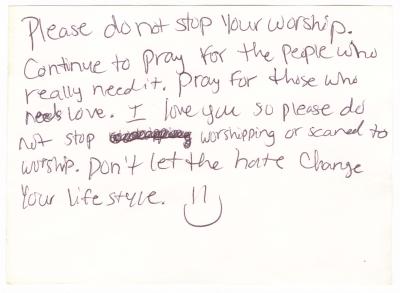 Please do not stop your worship.
Continue to pray for the people who
really need it. Pray for those who
needs love. I love you so please do
not stop worshipping or scared to
worship. Don't let the hate change
your life style.